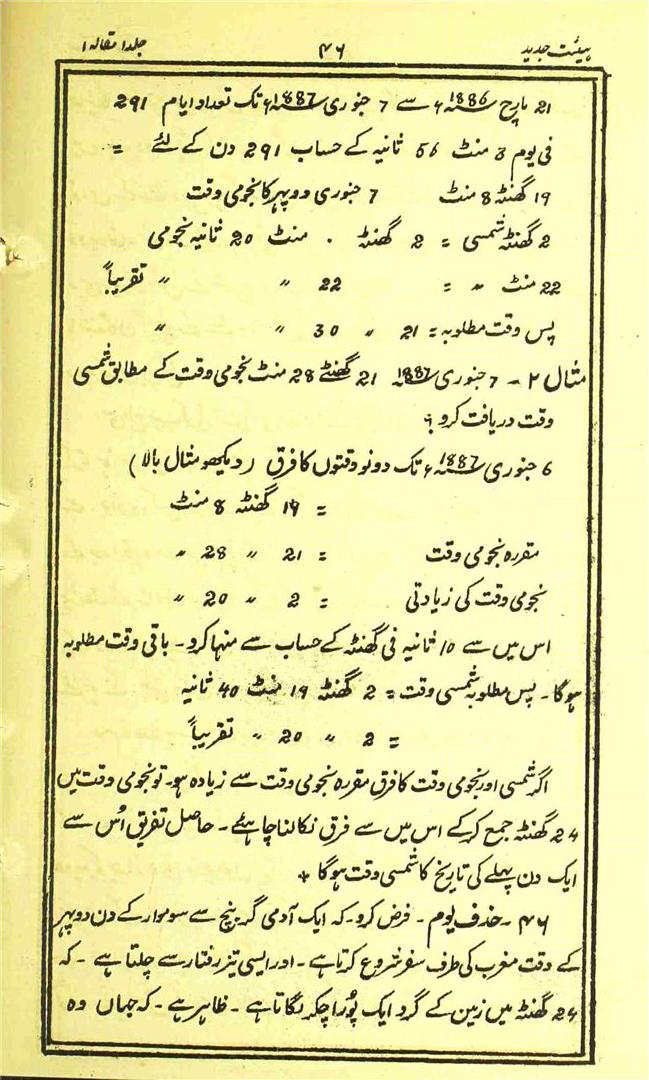 ہیئت جدید ۴۶ جلد ا مقالہ ا
21 مارچ 1886ء سے 7 جنوری 1887ء تک تعداد ایام 291
فی یوم 3 منٹ 56 ثانیہ کے حساب 291 دن کے لئے =
19 گھنٹہ 8 منٹ 7 جنوری دوپہر کا نجومی وقت
2 گھنٹہ شمسی = 2 گھنٹہ . منٹ 20 ثانیہ نجومی
22 منٹ 〃 = 22 〃 〃 تقریباً
پس وقت مطلوبہ = 21 〃 30 〃 〃
مثال ۲ - 7 جنوری 1887ء 21 گھنٹے 28 منٹ نجومی وقت کے مطابق شمسی
وقت دریافت کرو ؟
6 جنوری 1887ء تک دونو وقتوں کا فرق (دیکھو مثال بالا)
= 19 گھنٹہ 8 منٹ
مقررہ نجومی وقت = 21 〃 28 〃
نجومی وقت کی زیادتی = 2 〃 20 〃
اس میں سے 10 ثانیہ فی گھنٹہ کے حساب سے منہا کرو - باقی وقت مطلوبہ
ہوگا - پس مطلوبہ شمسی وقت = 2 گھنٹہ 19 منٹ 40 ثانیہ
= 2 〃 20 〃 تقریباً
اگر شمسی اور نجومی وقت کا فرق مقررہ نجومی وقت سے زیادہ ہو - تو نجومی وقت میں
24 گھنٹہ جمع کرکے اس میں سے فرق نکالنا چاہئے - حاصل تفریق اُس سے
ایک دن پہلے کی تاریخ کا شمسی وقت ہوگا +
۴۶ - حذف یوم - فرض کرو - کہ ایک آدمی گرینچ سے سوموار کے دن دوپہر
کے وقت مغرب کی طرف سفر شروع کرتا ہے - اور ایسی تیز رفتار سے چلتا ہے - کہ
24 گھنٹہ میں زمین کے گرد ایک پُورا چکر لگاتا ہے - ظاہر ہے - کہ جہاں وہ